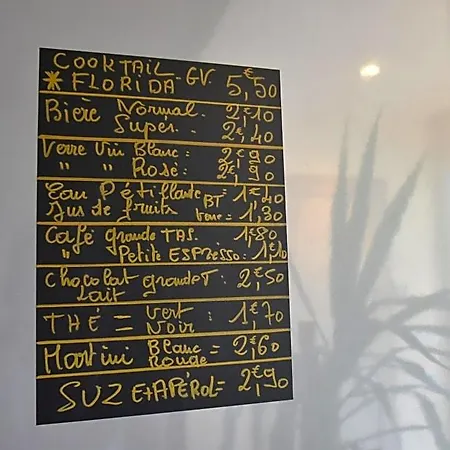 COCKTAIL
* FLORIDA - GV. 5,50
Bière Normal. 2,€10
Super.. 2,€40
Verre Vin Blanc: 2,€90
" " Rosé: 2,€90
Eau Pétillante BT = 1,€40
Jus de fruits verre = 1,30
Café grande TAS. 1,€80
" Petite ESPRESSO: 1,€10
Chocolat grande T: 2,€50
lait
THÉ = Vert
Noir : 1,€70
Martini Blanc = 2,€60
Rouge
SUZ Et APÉROL = 2,€90